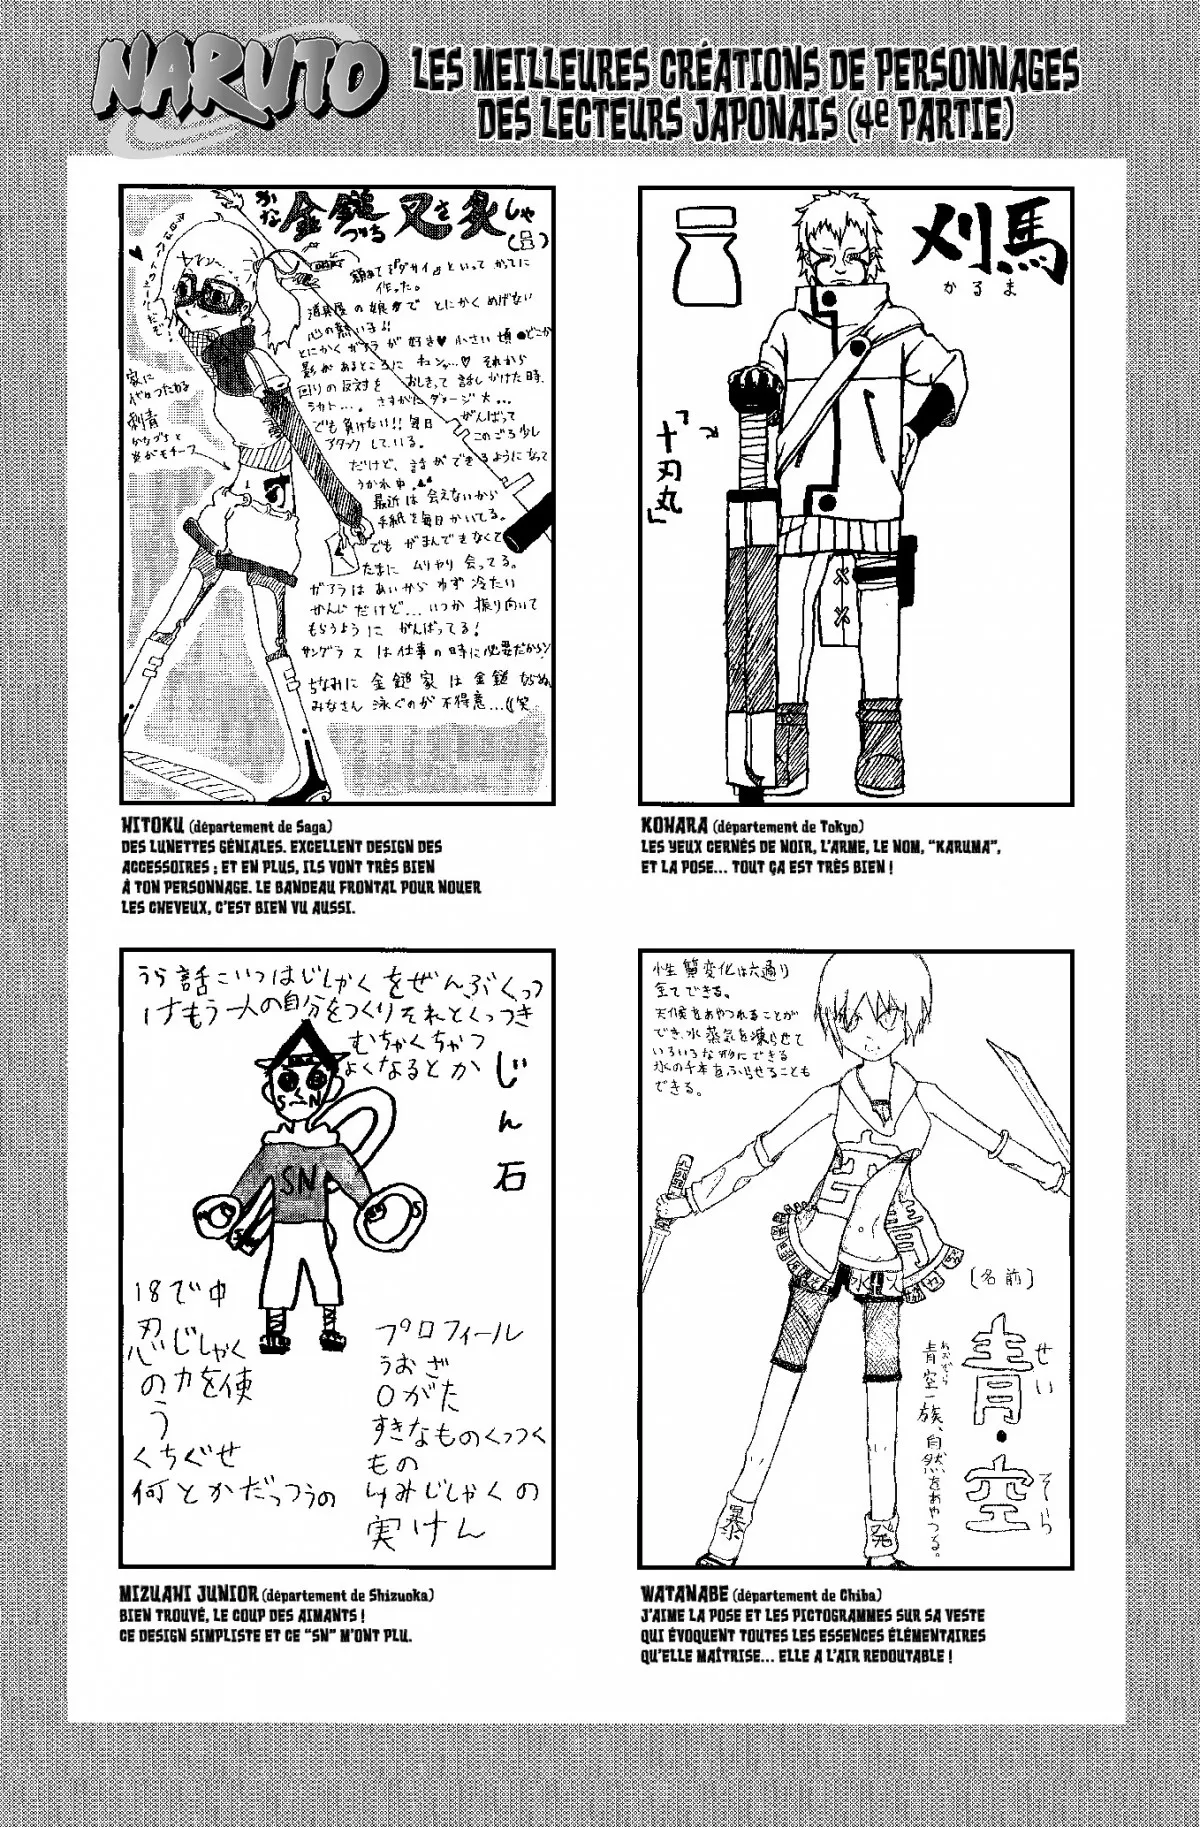 NARUTO
LES MEILLEURES CRÉATIONS DE PERSONNAGES
DES LECTEURS JAPONAIS (4e PARTIE)
金鎚 又 炙
かな づち さ しゃ
額あてを『ダサイ』といって かってに
作った。
道具屋の娘で とにかく めげない
心の熱い子!!
とにかく ガアラが 好き♥ 小さい頃 どこか
影があるところに キュン…♡ それから
回りの反対を おしきって 話しかけた時、
シカト…。 さすがに ダメージ 大…
でも負けない!! 毎日 がんばって
アタックしている。 このごろ少し
だけど、話ができるようになって
うかれ中。
最近は 会えないから
手紙を毎日かいてる。
でも がまんできなくて
たまに ムリヤリ 会ってる。
ガアラは あいかわらず 冷たい
かんじだけど... いつか 振り向いて
もらうように がんばってる!
サングラスは仕事の時に必要だから!
ちなみに 金鎚家は金鎚ならぬ
みなさん 泳ぐのが 不得意...(笑
家に
代々つたわる
刺青
かなづちと
炎がモチーフ
HITOKU (département de Saga)
DES LUNETTES GÉNIALES. EXCELLENT DESIGN DES
ACCESSOIRES ; ET EN PLUS, ILS VONT TRÈS BIEN
À TON PERSONNAGE. LE BANDEAU FRONTAL POUR NOUER
LES CHEVEUX, C'EST BIEN VU AUSSI.
刈馬
かるま
「十刃丸」
KOHARA (département de Tokyo)
LES YEUX CERNÉS DE NOIR, L'ARME, LE NOM, "KARUMA",
ET LA POSE... TOUT ÇA EST TRÈS BIEN !
うら話こいつはじしゃくをぜんぶくっつ
けもう一人の自分をつくりそれとくっつき
むちゃくちゃつ
よくなるとか
じん石
S N
SN
S
18で中
忍じしゃく
の力を使
う
くちぐせ
何とかだっつうの
プロフィール
うおざ
O がた
すきなものくっつく
もの
しゅみじしゃくの
実けん
MIZUAHI JUNIOR (département de Shizuoka)
BIEN TROUVÉ, LE COUP DES AIMANTS !
CE DESIGN SIMPLISTE ET CE "SN" M'ONT PLU.
性質変化は六通り
全てできる。
天候をあやつれることが
でき、水蒸気を凍らせて
いろいろな形にできる
氷の千本をふらせることも
できる。
空
青
水 火
暴
発
[名前]
青・空
せい そら
青空一族、自然をあやつる。
あおぞら
WATANABE (département de Chiba)
J'AIME LA POSE ET LES PICTOGRAMMES SUR SA VESTE
QUI ÉVOQUENT TOUTES LES ESSENCES ÉLÉMENTAIRES
QU'ELLE MAÎTRISE... ELLE A L'AIR REDOUTABLE !